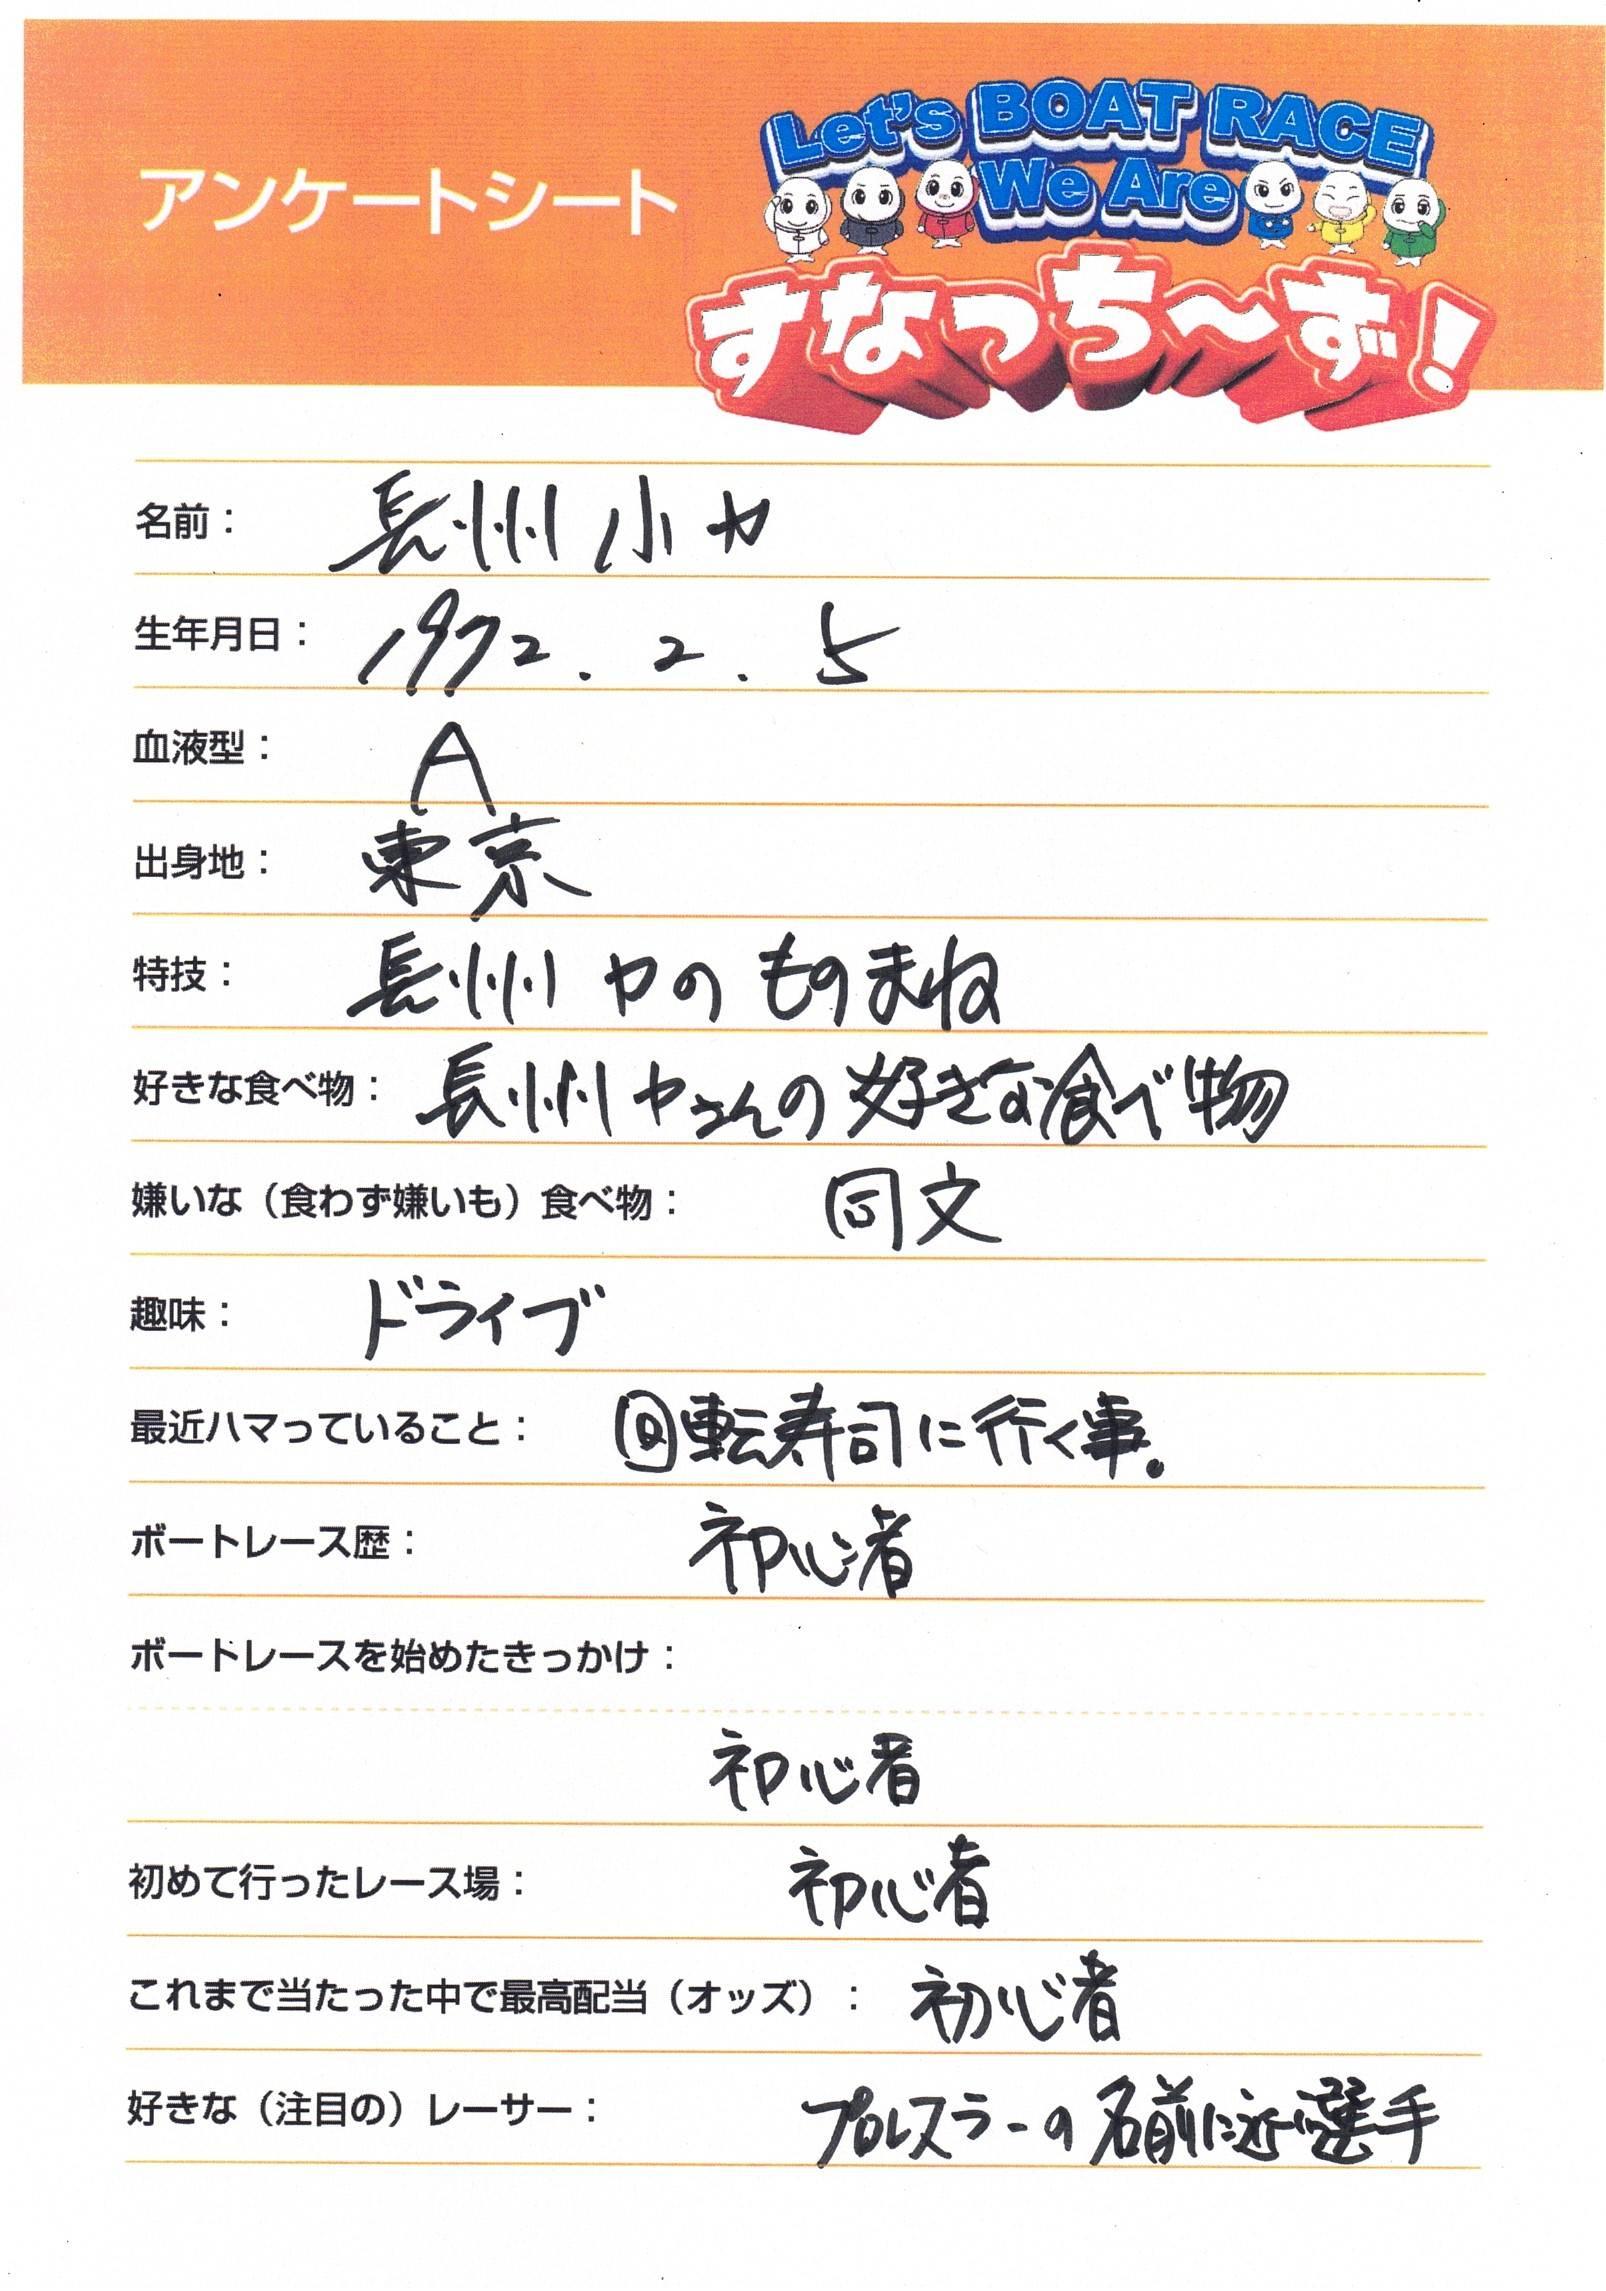 アンケートシート
Let's BOAT RACE
We Are
すなっち〜ず!
名前： 長州小力
生年月日： 1972.2.5
血液型： A
出身地： 東京
特技： 長州力のものまね
好きな食べ物： 長州力さんの好きな食べ物
嫌いな（食わず嫌いも）食べ物： 同文
趣味： ドライブ
最近ハマっていること： 回転寿司に行く事.
ボートレース歴： 初心者
ボートレースを始めたきっかけ：
初心者
初めて行ったレース場： 初心者
これまで当たった中で最高配当（オッズ）： 初心者
好きな（注目の）レーサー： プロレスラーの名前に近い選手